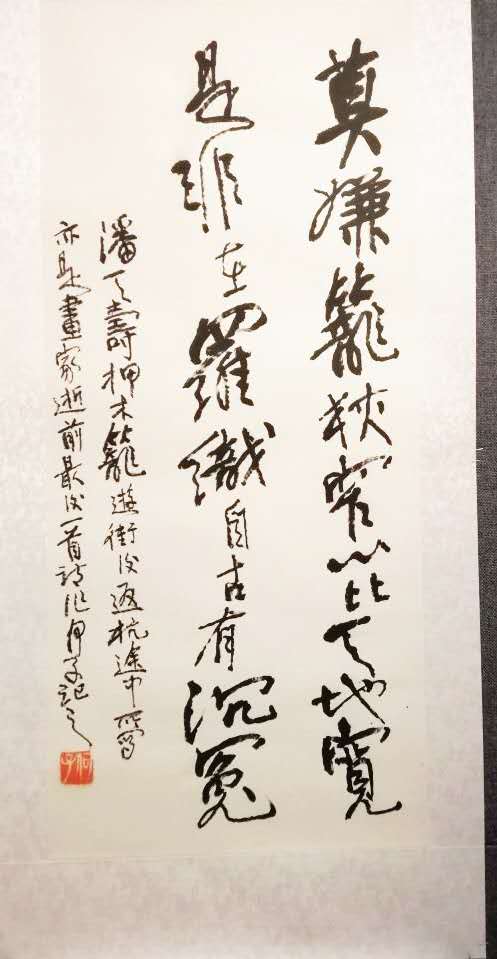 莫嫌籠狹窄心比天地寬
是非在羅織自古有沉冤
潘天壽押木籠遊街後返杭途中所寫
亦是畫家逝前最後一首詩作 子記之